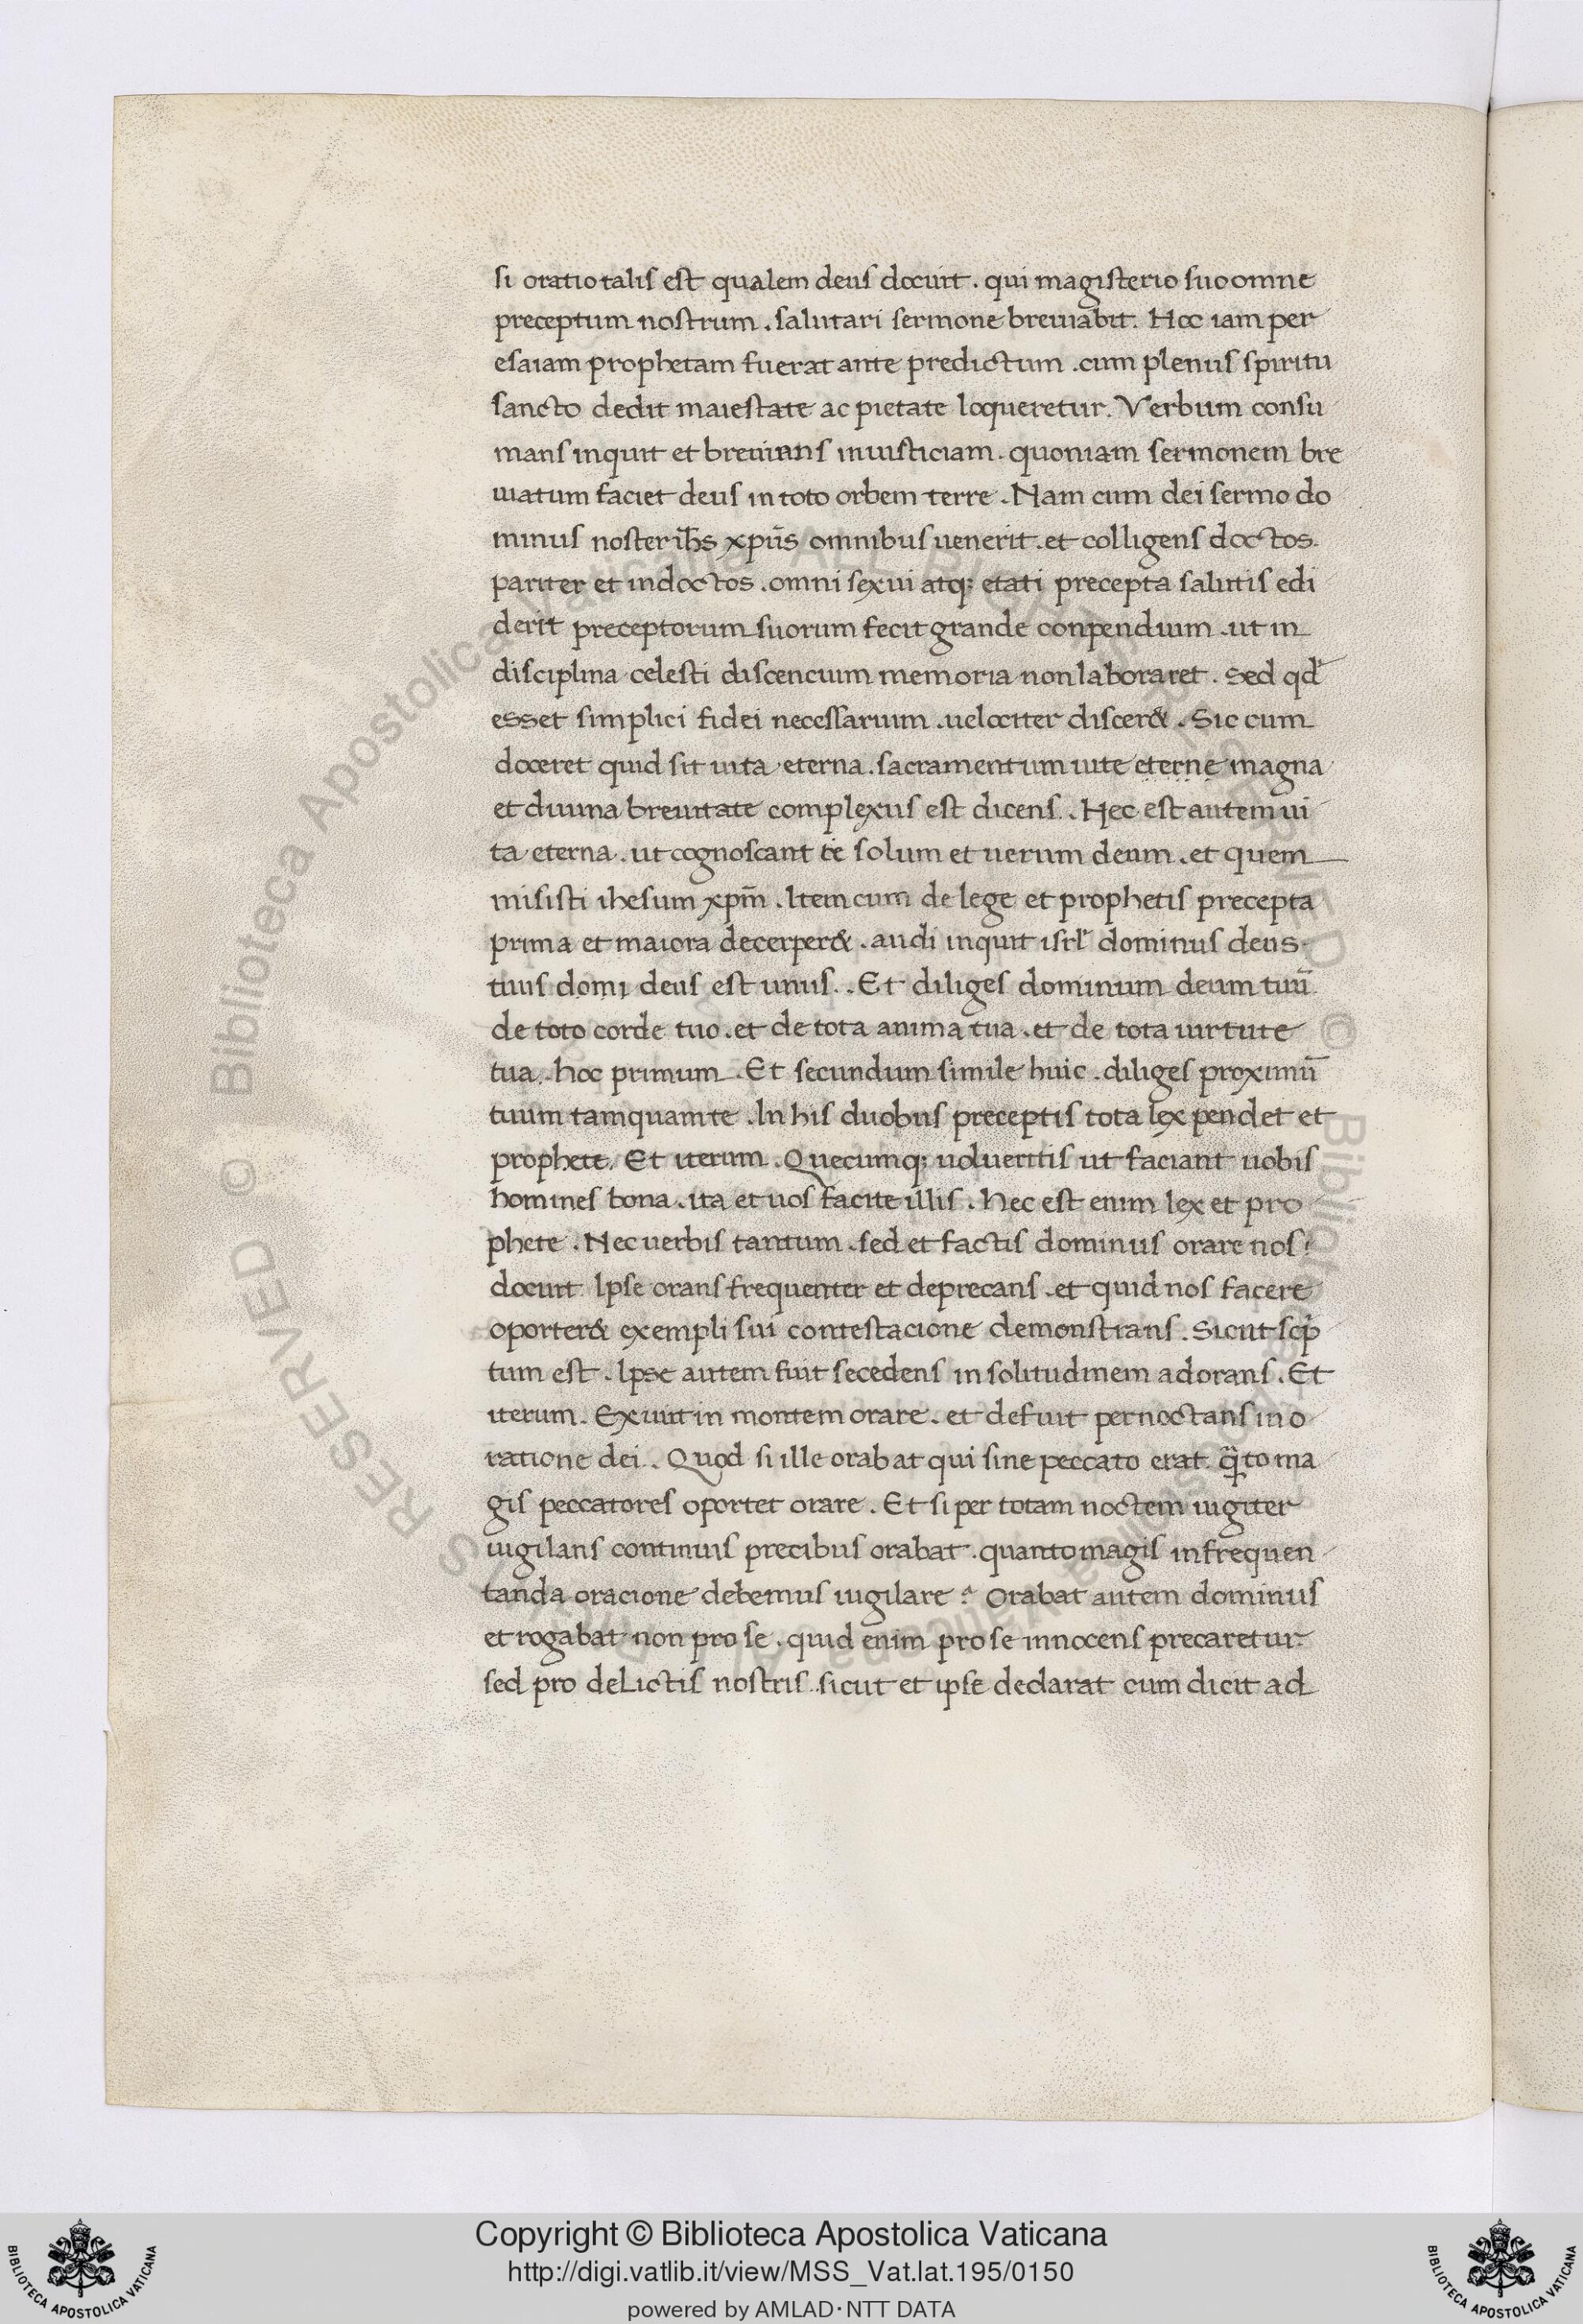 si oratio talis est qualem deus docuit . qui magisterio suo omne
preceptum nostrum . salutari sermone breuiabit. Hoc iam per
esaiam prophetam fuerat ante predictum . cum plenus spiritu
sancto dedit maiestate ac pietate loqueretur. Verbum consu
mans inquit et breuians in iusticiam . quoniam sermonem bre
uiatum faciet deus in toto orbem terre . Nam cum dei sermo do
minus noster ih̅s xpu̅s omnibus uenerit . et colligens doctos
pariter et indoctos . omni sexui atq; etati precepta salutis edi
derit preceptorum suorum fecit grande conpendium . ut in
disciplina celesti discencium memoria non laboraret . Sed qd̓
esset simplici fidei necessarium . uelociter discer& . Sic cum
doceret quid sit uita eterna . sacramentum uite eterne magna
et diuina breuitate complexus est dicens . Hec est autem ui
ta eterna . ut cognoscant te solum et uerum deum . et quem
misisti ihesum xpm̅ . Item cum de lege et prophetis precepta
prima et maiora decerper& . audi inquit isrl̓ dominus deus
tuus domi deus est unus . Et diliges dominum deum tuu̅
de toto corde tuo . et de tota anima tua . et de tota uirtute
tua . hoc primum . Et secundum simile huic . diliges proximu̅
tuum tamquam te . In his duobus preceptis tota lex pendet et
prophete. Et iterum . Quecumq; uolueritis ut faciant uobis
homines bona . ita et uos facite illis . Hec est enim lex et pro
phete . Nec uerbis tantum . sed et factis dominus orare nos
docuit Ipse orans frequenter et deprecans . et quid nos facere
oporter& exempli sui contestacione demonstrans . Sicut scp̓
tum est . Ipse autem fuit secedens in solitudinem adorans . Et
iterum . Exiuit in montem orare . et defuit pernoctans in o
ratione dei . Quod si ille orabat qui sine peccato erat q̅to ma
gis peccatores oportet orare . Et si per totam noctem iugiter
uigilans continuis precibus orabat . quanto magis in frequen
tanda oracione debemus uigilare ? Orabat autem dominus
et rogabat non pro se . quid enim pro se innocens precaretur
sed pro delictis nostris . sicut et ipse declarat cum dicit ad
© Biblioteca Apostolica Vaticana
Copyright © Biblioteca Apostolica Vaticana
http://digi.vatlib.it/view/MSS_Vat.lat.195/0150
powered by AMLAD·NTT DATA
BIBLIOTECA APOSTOLICA VATICANA
BIBLIOTECA APOSTOLICA VATICANA